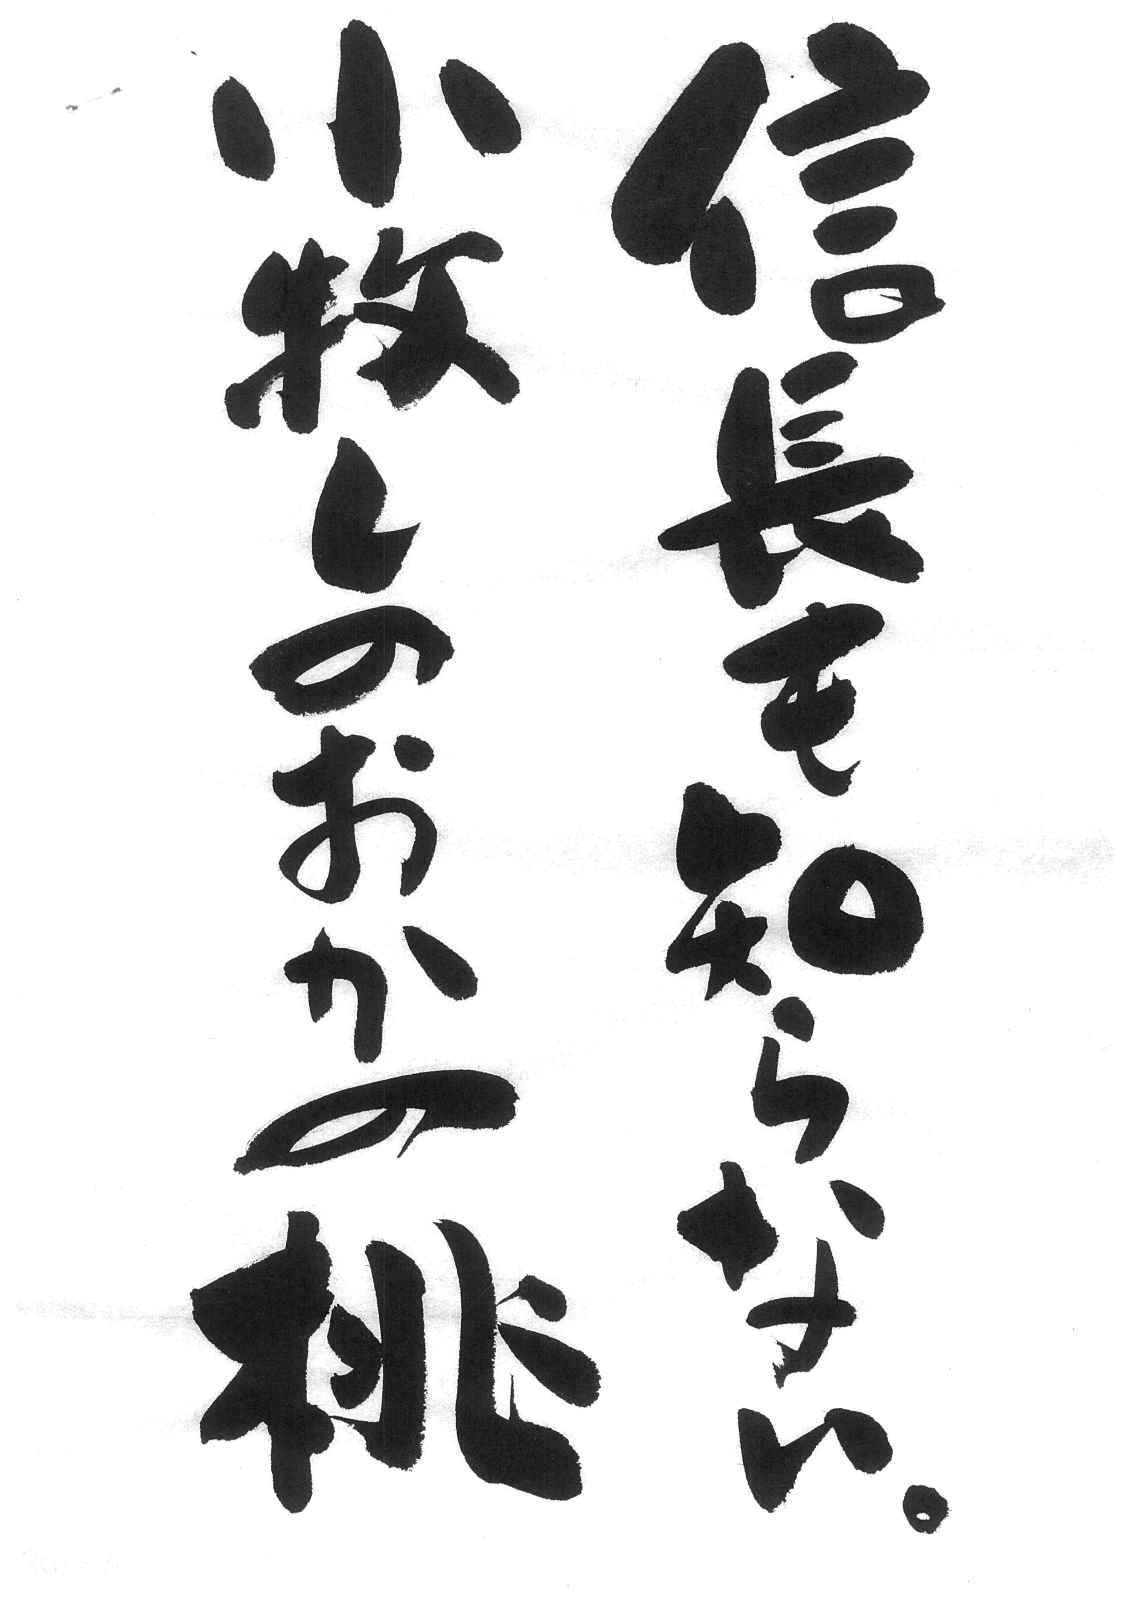 信長も知らない。
小牧しのおかの桃